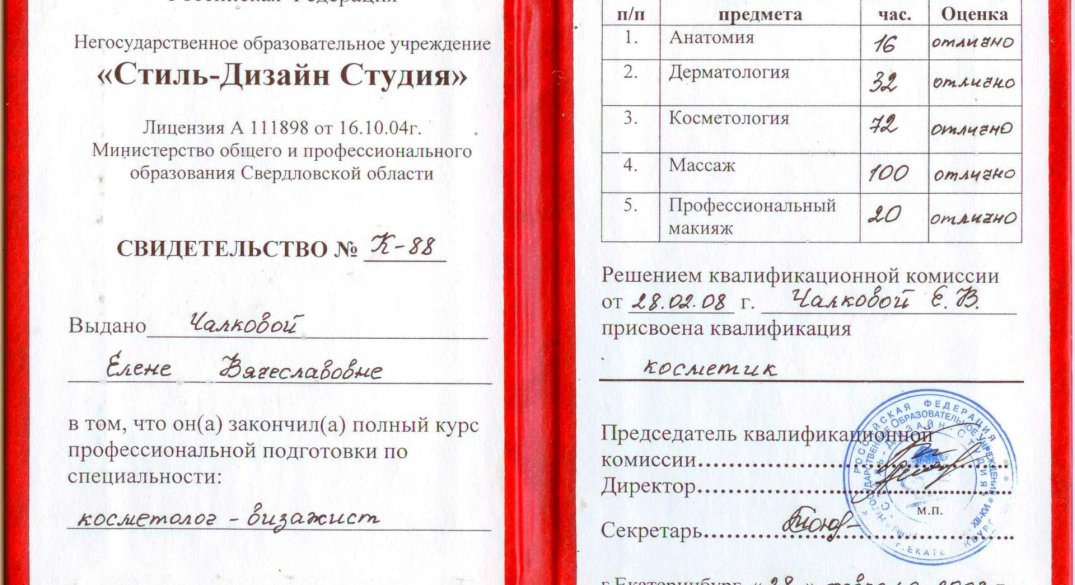 Российская Федерация
Негосударственное образовательное учреждение
«Стиль-Дизайн Студия»
Лицензия А 111898 от 16.10.04г.
Министерство общего и профессионального
образования Свердловской области
СВИДЕТЕЛЬСТВО № К-88
Выдано Чалковой
Елене Вячеславовне
в том, что он(а) закончил(а) полный курс
профессиональной подготовки по
специальности:
косметолог - визажист
п/п предмета час. Оценка
1. Анатомия 16 отлично
2. Дерматология 32 отлично
3. Косметология 72 отлично
4. Массаж 100 отлично
5. Профессиональный
макияж 20 отлично
Решением квалификационной комиссии
от 28.02.08 г. Чалковой Е. В.
присвоена квалификация
косметик
Председатель квалификационной
комиссии
Директор
м.п.
Секретарь
РОССИЙСКАЯ ФЕДЕРАЦИЯ
г.Екатеринбург «28» февраля